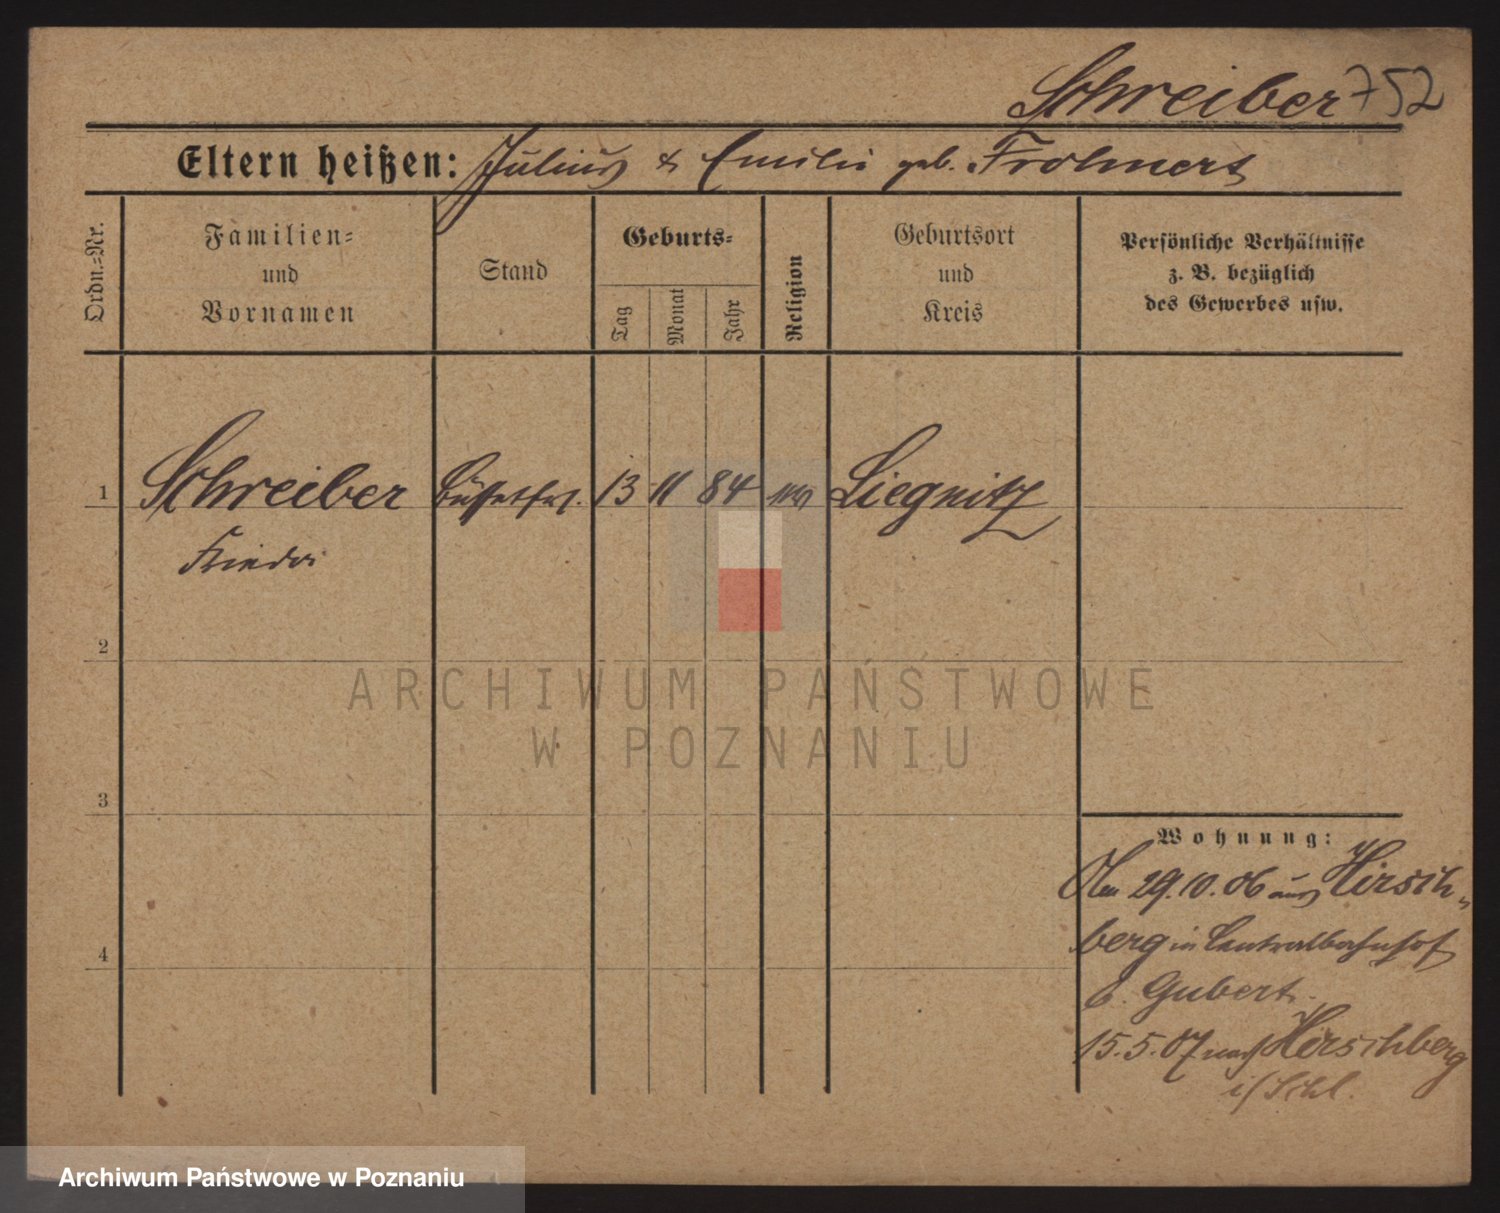 Schreiber 752
Eltern heißen: Julius & Emilie geb. Frohnert
Ordn.=Nr.
Familien=
und
Vornamen
Stand
Geburts=
Tag
Monat
Jahr
Religion
Geburtsort
und
Kreis
Persönliche Verhältnisse
z. B. bezüglich
des Gewerbes usw.
1 Schreiber Büffetfrl. 13 11 84 Liegnitz
Frieda
2
ARCHIWUM PAŃSTWOWE
W POZNANIU
3
Wohnung:
29.10.06 aus Hirsch-
4 berg in Centralbahnhof
b. Gubert.
15.5.07 nach Hirschberg
i/Schl.
Archiwum Państwowe w Poznaniu